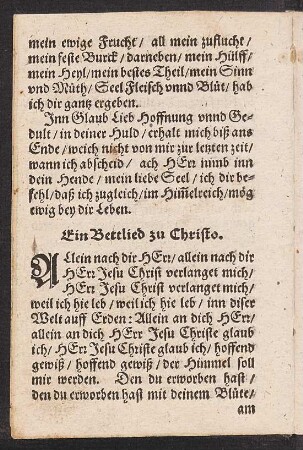 mein ewige Frucht/ all mein zuflucht/
mein feste Burck/ darneben/ mein Hülff/
mein Heyl/ mein bestes Theil/ mein Sinn
vnd Müth/ Seel Fleisch vnnd Blüt/ hab
ich dir gantz ergeben.
Inn Glaub Lieb Hoffnung vnnd Ge-
dult/ in deiner Huld/ erhalt mich biß ans
Ende/ weich nicht von mir zur letzten zeit/
wann ich abscheid/ ach HErr nimb inn
dein Hende/ mein liebe Seel/ ich dir be-
fehl/ daß ich zugleich/ im Him̃elreich/ mög
ewig bey dir Leben.
Ein Bettlied zu Christo.
Allein nach dir HErr/ allein nach dir
HErr Jesu Christ verlanget mich/
HErr Jesu Christ verlanget mich/
weil ich hie leb/ weil ich hie leb/ inn diser
Welt auff Erden: Allein an dich HErr/
allein an dich HErr Jesu Christe glaub
ich/ HErr Jesu Christe glaub ich/ hoffend
gewiß/ hoffend gewiß/ der Himmel soll
mir werden. Den du erworben hast/
den du erworben hast mit deinem Blüte/
am